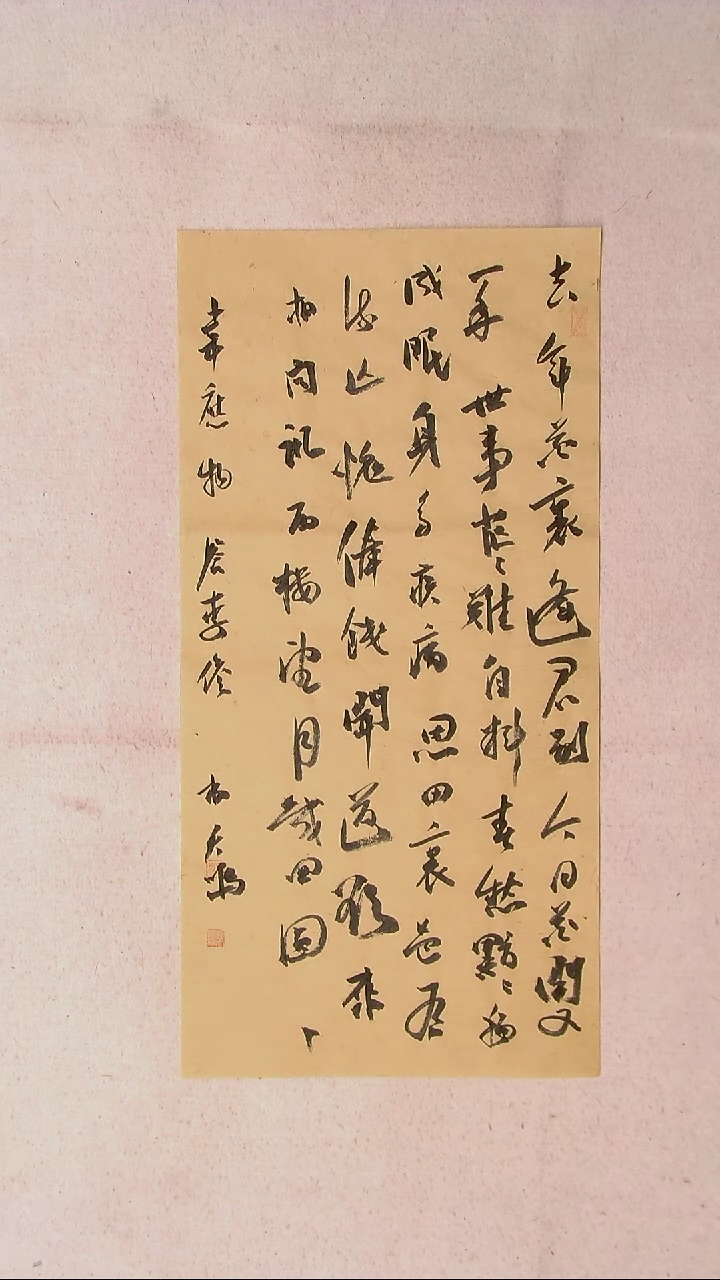 去年花裏逢君别今日花開又
一年世事茫〻難自料春愁黯〻獨
成眠身多疾病思田裏邑有
流亡愧俸錢聞道欲來
相问訊西樓望月幾回圓
韋應物 答李儋